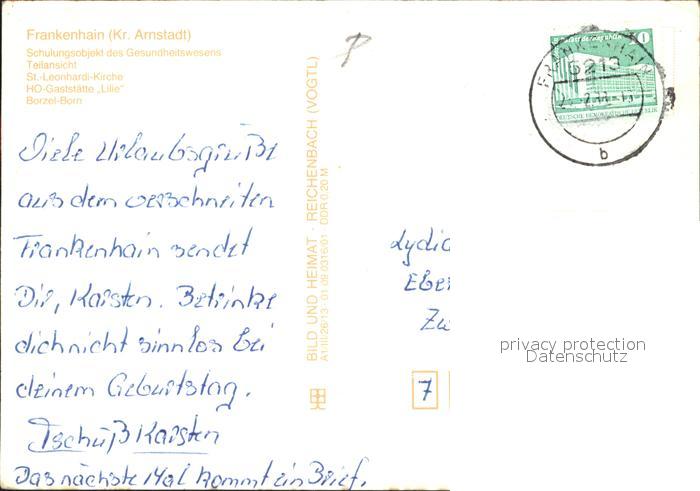 Frankenhain (Kr. Arnstadt)
Schulungsobjekt des Gesundheitswesens
Teilansicht
St.-Leonhardi-Kirche
HO-Gaststätte „Lilie"
Borzel-Born
Viele Urlaubsgrüße
aus dem verschneiten
Frankenhain sendet
Dir, Karsten. Betrinke
dich nicht sinnlos bei
deinem Geburtstag.
Tschüß Karsten
Das nächste Mal kommt ein Brief.
BILD UND HEIMAT · REICHENBACH (VOGTL)
A1/III/26/13 · 01 09 0316/01 DDR 0,20 M
FRANKENHAIN
5213
b
DEUTSCHE DEMOKRATISCHE REPUBLIK
Lydia
Eber
Zw
7
privacy protection
Datenschutz